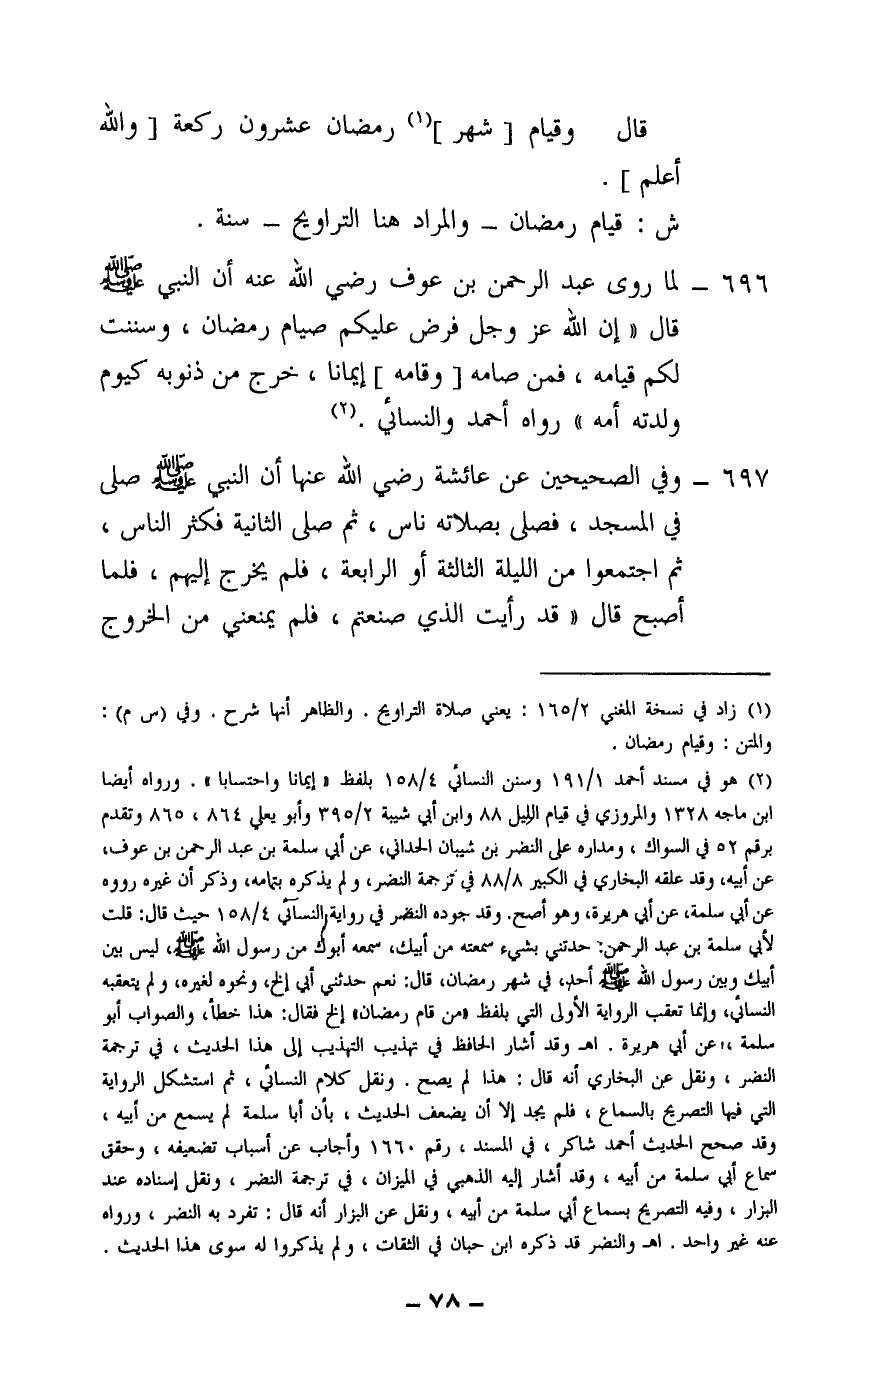 قال وقيام [ شهر ](١) رمضان عشرون ركعة [ والله
أعلم ] .
ش : قيام رمضان – والمراد هنا التراويح – سنة .
٦٩٦ – لما روى عبد الرحمن بن عوف رضي الله عنه أن النبي ﷺ
قال « إن الله عز وجل فرض عليكم صيام رمضان ، وسننت
لكم قيامه ، فمن صامه [ وقامه ] إيمانا ، خرج من ذنوبه كيوم
ولدته أمه » رواه أحمد والنسائي .(٢)
٦٩٧ – وفي الصحيحين عن عائشة رضي الله عنها أن النبي ﷺ صلى
في المسجد ، فصلى بصلاته ناس ، ثم صلى الثانية فكثر الناس ،
ثم اجتمعوا من الليلة الثالثة أو الرابعة ، فلم يخرج إليهم ، فلما
أصبح قال « قد رأيت الذي صنعتم ، فلم يمنعني من الخروج
(١) زاد في نسخة المغني ١٦٥/٢ : يعني صلاة التراويح . والظاهر أنها شرح . وفي (س م) :
والمتن : وقيام رمضان .
(٢) هو في مسند أحمد ١٩١/١ وسنن النسائي ١٥٨/٤ بلفظ « إيمانا واحتسابا » . ورواه أيضا
ابن ماجه ١٣٢٨ والمروزي في قيام الليل ٨٨ وابن أبي شيبة ٣٩٥/٢ وأبو يعلي ٨٦٤ ، ٨٦٥ وتقدم
برقم ٥٢ في السواك ، ومداره على النضر بن شيبان الحداني، عن أبي سلمة بن عبد الرحمن بن عوف،
عن أبيه، وقد علقه البخاري في الكبير ٨٨/٨ في ترجمة النضر، ولم يذكره بتمامه، وذكر أن غيره رووه
عن أبي سلمة، عن أبي هريرة، وهو أصح. وقد جوده النضر في رواية النسائي ١٥٨/٤ حيث قال: قلت
لأبي سلمة بن عبد الرحمن: حدثني بشيء سمعته من أبيك، سمعه أبوك من رسول الله ﷺ، ليس بين
أبيك وبين رسول الله ﷺ أحد، في شهر رمضان، قال: نعم حدثني أبي إلخ، ونحوه لغيره، ولم يتعقبه
النسائي، وإنما تعقب الرواية الأولى التي بلفظ «من قام رمضان» إلخ فقال: هذا خطأ، والصواب أبو
سلمة ، عن أبي هريرة . اهـ وقد أشار الحافظ في تهذيب التهذيب إلى هذا الحديث ، في ترجمة
النضر ، ونقل عن البخاري أنه قال : هذا لم يصح . ونقل كلام النسائي ، ثم استشكل الرواية
التي فيها التصريح بالسماع ، فلم يجد إلا أن يضعف الحديث ، بأن أبا سلمة لم يسمع من أبيه ،
وقد صحح الحديث أحمد شاكر ، في المسند ، رقم ١٦٦٠ وأجاب عن أسباب تضعيفه ، وحقق
سماع أبي سلمة من أبيه ، وقد أشار إليه الذهبي في الميزان ، في ترجمة النضر ، ونقل إسناده عند
البزار ، وفيه التصريح بسماع أبي سلمة من أبيه ، ونقل عن البزار أنه قال : تفرد به النضر ، ورواه
عنه غير واحد . اهـ والنضر قد ذكره ابن حبان في الثقات ، ولم يذكروا له سوى هذا الحديث .
– ٧٨ –